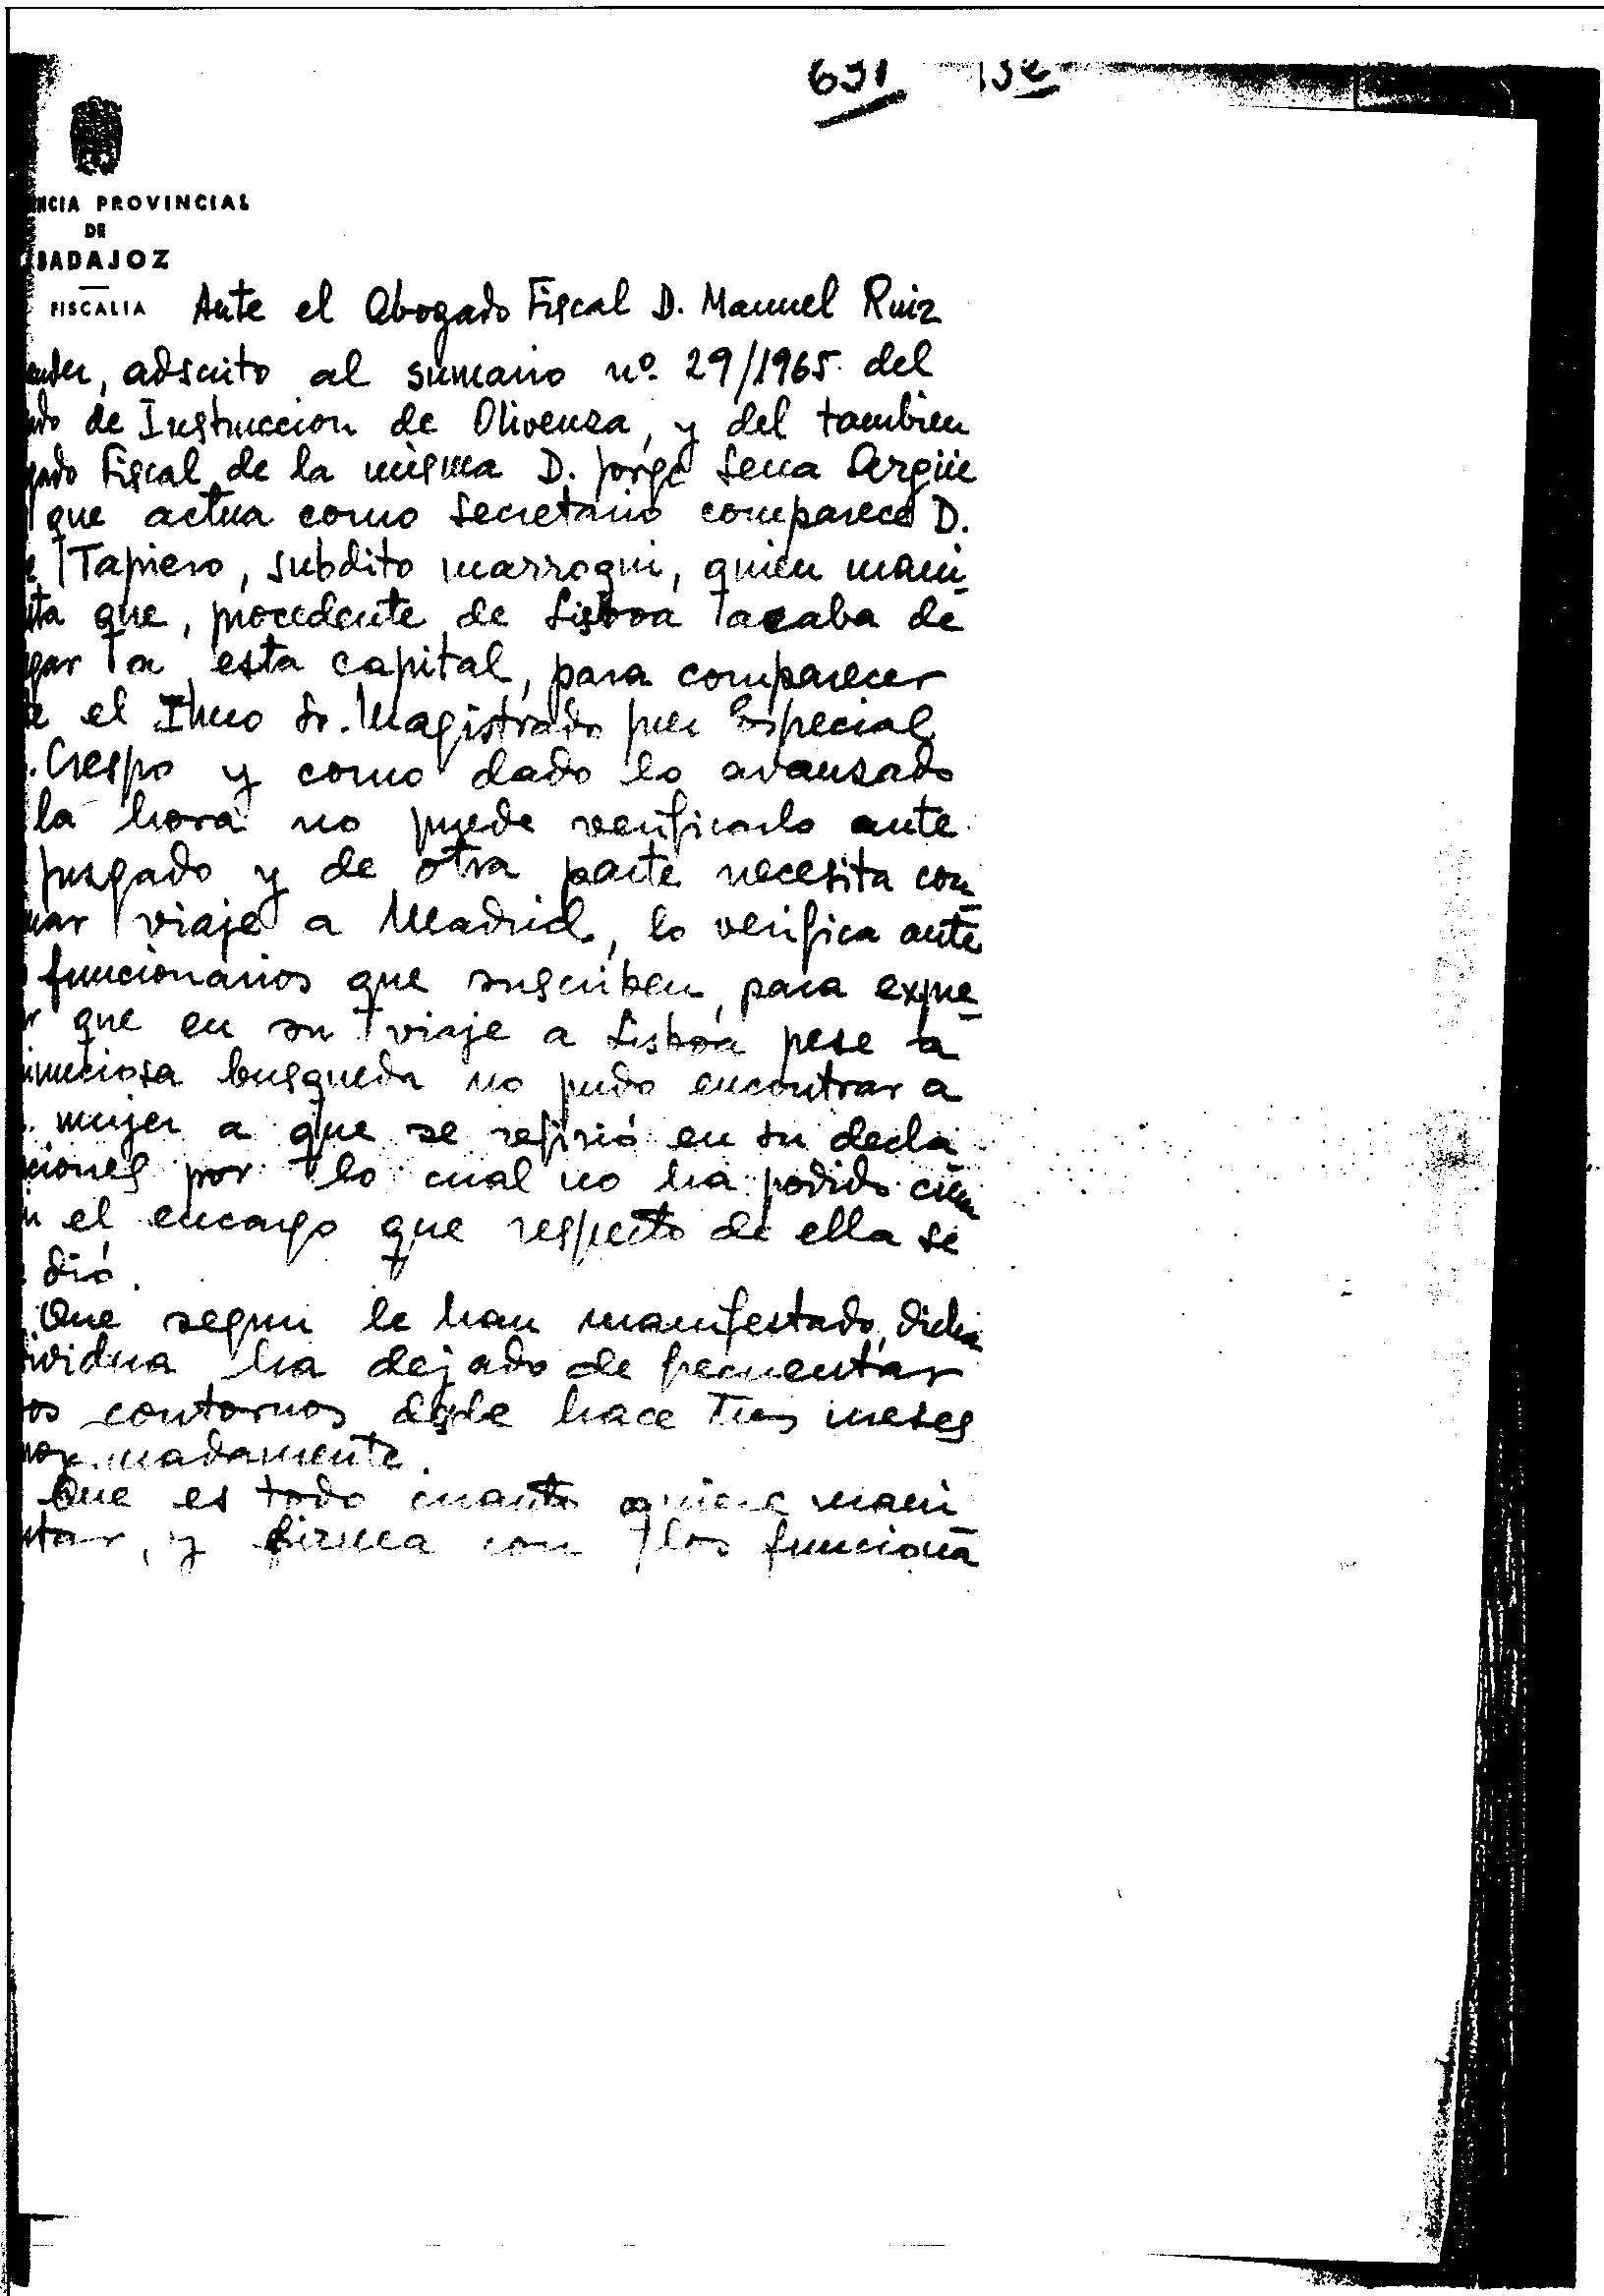 631
NCIA PROVINCIAL
DE
BADAJOZ
FISCALIA Ante el Abogado Fiscal D. Manuel Ruiz
adscrito al sumario nº 29/1965 del
de Instruccion de Olivenza, y del tambien
gado Fiscal de la misma D. Jorge Sena Argüe
que actua como Secretario comparece D.
Tapiero, subdito marroqui, quien mani
sta que, procedente de Lisboa acaba de
gar a esta capital, para comparecer
e el Ilmo Sr. Magistrado Juez Especial
. Crespo y como dado lo avanzado
la hora no puede verificarlo ante
Juzgado y de otra parte necesita con
uar viaje a Madrid, lo verifica ante
funcionarios que suscriben, para expre
r que en su viaje a Lisboa pese a
inuciosa busqueda no pudo encontrar a
mujer a que se refirió en su decla
ciones por lo cual no ha podido cum
el encargo que respecto de ella se
dió.
Que segun le han manifestado, dicha
ividua ha dejado de frecuentar
os contornos desde hace tres meses
rox.madamente.
Que es todo cuanto quiere mani
star, y firma con los funciona